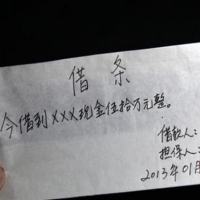 借条
今借到XXX现金伍拾万元整。
借款人:
担保人:
2013年01月